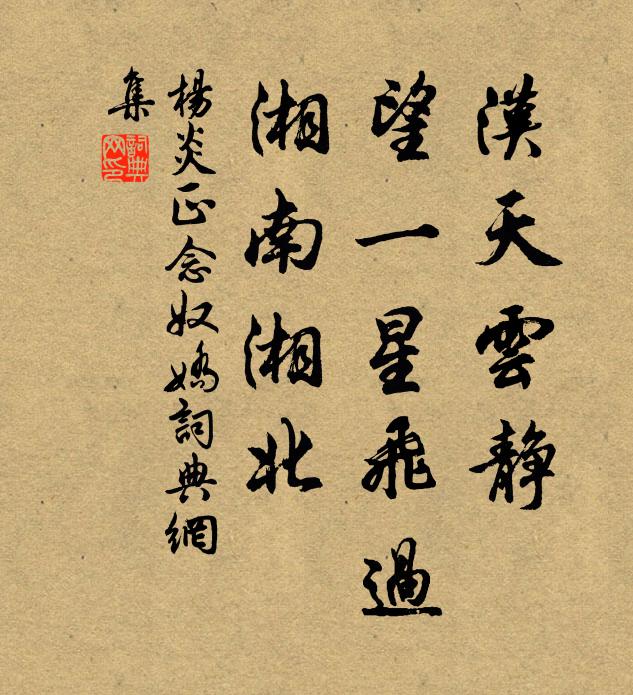 漢天雲靜
望一星飛過
湘南湘北
楊炎正念奴嬌詞典網
集
詞典
网印